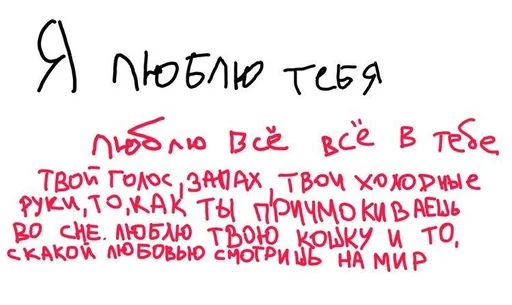 Я люблю тебя
люблю всё всё в тебе
ТВОЙ ГОЛОС, ЗАПАХ, ТВОИ ХОЛОДНЫЕ
РУКИ, ТО, КАК ТЫ ПРИЧМОКИВАЕШЬ
ВО СНЕ. ЛЮБЛЮ ТВОЮ КОШКУ И ТО,
С КАКОЙ ЛЮБОВЬЮ СМОТРИШЬ НА МИР